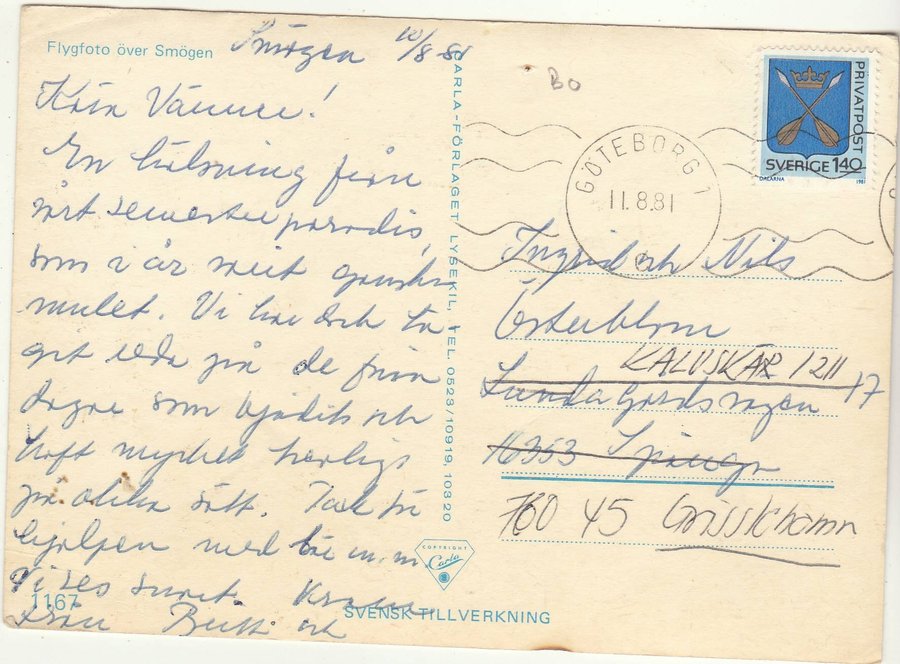 Flygfoto över Smögen
Smögen 10/8-81
Kära Vänner!
En hälsning från
vårt semesterparadis,
som i år varit ganska
mulet. Vi har dock ta
git reda på de fina
dagar som bjudits och
haft mycket härligt
på olika sätt. Tack för
hjälpen med m.m.
Vi ses snart. Kramar
från och
1167
CARLA-FÖRLAGET LYSEKIL, TEL. 0523/10919, 10320
COPYRIGHT
Carla
SVENSK TILLVERKNING
BO
GÖTEBORG 1
11.8.81
PRIVATPOST
SVERIGE 140
DALARNA
1981
Ingrid och Nils
Österblom
KALVSKÄR 1211
Lundagårdsvägen 17
16353 Spånga
760 45 Grisslehamn